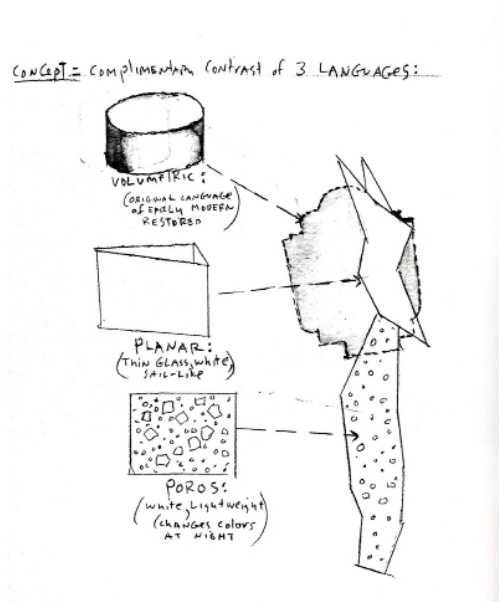 CONCEPT = COMPLIMENTARY CONTRAST of 3 LANGUAGES:
VOLUMETRIC:
(ORIGINAL LANGUAGE
of EARLY MODERN
RESTORED
PLANAR:
(THIN GLASS, white,
SAIL-LIKE
POROS:
(white, Lightweight)
(changes colors
AT NIGHT